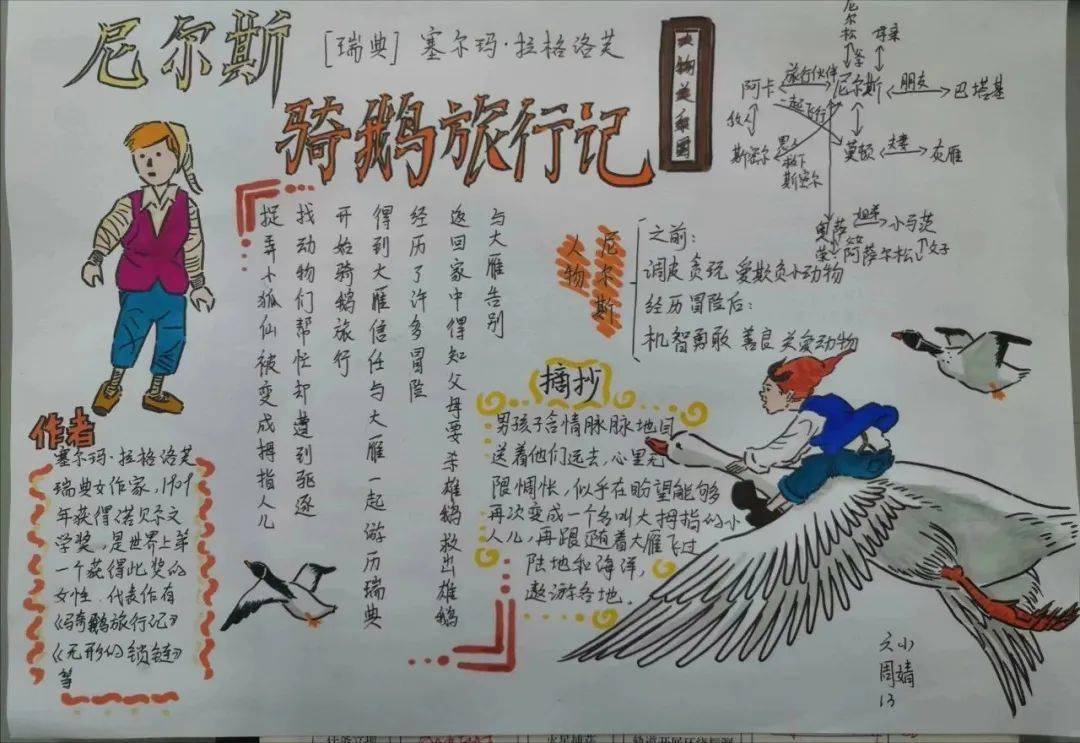 尼尔斯
[瑞典] 塞尔玛·拉格洛芙
骑鹅旅行记
人物关系图
尼尔松
母亲
阿卡
旅行伙伴
尼尔斯
朋友
巴塔基
一起飞行
仇人
斯密尔
斯密尔
莫顿
夫妻
灰雁
姐弟
小马茨
阿萨尔松
父子
捉弄小狐仙被变成拇指人儿
找动物们帮忙却遭到驱逐
开始骑鹅旅行
得到大雁信任与大雁一起游历瑞典
经历了许多冒险
返回家中得知父母要杀雄鹅救出雄鹅
与大雁告别
尼尔斯
人物
之前：
调皮贪玩 爱欺负小动物
经历冒险后：
机智勇敢 善良 关爱动物
作者
塞尔玛·拉格洛芙
瑞典女作家，1909
年获得诺贝尔文
学奖，是世界上第
一个获得此奖的
女性．代表作有
《骑鹅旅行记》
《无形的锁链》
等
摘抄
男孩子含情脉脉地目
送着他们远去，心里无
限惆怅，似乎在盼望能够
再次变成一个名叫大拇指的小
人儿，再跟随着大雁飞过
陆地和海洋，
遨游各地．
文小
周婧
13